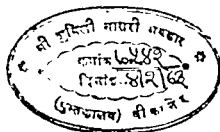 श्री जुबिली नागरी भण्डार
क्रमांक ६५४७
दिनांक ४/२/६२
(पुस्तकालय) बीकानेर